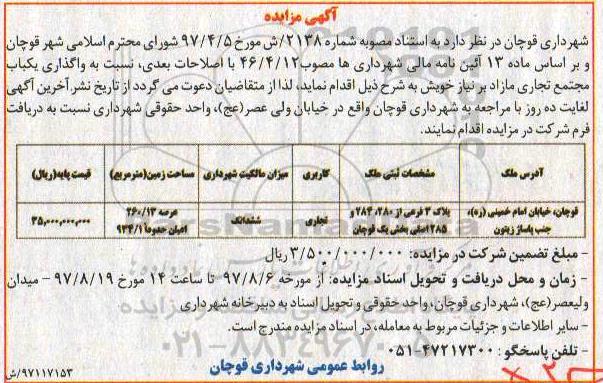 آگهی مزایده
شهرداری قوچان در نظر دارد به استناد مصوبه شماره ۲۱۳۸/ش مورخ ۹۷/۴/۵ شورای محترم اسلامی شهر قوچان
و بر اساس ماده ۱۳ آئین نامه مالی شهرداری ها مصوب ۴۶/۴/۱۲ با اصلاحات بعدی، نسبت به واگذاری یکباب
مجتمع تجاری مازاد بر نیاز خویش به شرح ذیل اقدام نماید، لذا از متقاضیان دعوت می گردد از تاریخ نشر آخرین آگهی
لغایت ده روز با مراجعه به شهرداری قوچان واقع در خیابان ولی عصر(عج)، واحد حقوقی شهرداری نسبت به دریافت
فرم شرکت در مزایده اقدام نمایند.
آدرس ملک مشخصات ثبتی ملک کاربری میزان مالکیت شهرداری مساحت زمین(مترمربع) قیمت پایه(ریال)
قوچان، خیابان امام خمینی (ره)، پلاک ۳ فرعی از ۲۸۰، ۲۸۴ و تجاری ششدانگ عرصه ۲۶۰/۱۳ ۳۵,۰۰۰,۰۰۰,۰۰۰
جنب پاساژ زیتون ۲۸۵ اصلی بخش یک قوچان اعیان حدوداً ۹۳۴/۱
- مبلغ تضمین شرکت در مزایده: ۳/۵۰۰/۰۰۰/۰۰۰ ریال
- زمان و محل دریافت و تحویل اسناد مزایده: از مورخه ۹۷/۸/۶ تا ساعت ۱۴ مورخ ۹۷/۸/۱۹ - میدان
ولیعصر(عج)، شهرداری قوچان، واحد حقوقی و تحویل اسناد به دبیرخانه شهرداری
- سایر اطلاعات و جزئیات مربوط به معامله، در اسناد مزایده مندرج است.
- تلفن پاسخگو : ۴۷۲۱۷۳۰۰-۰۵۱
روابط عمومی شهرداری قوچان
۹۷۱۱۷۱۵۳/ش
۰۲۱-۸۸۳۴۹۶۷۰